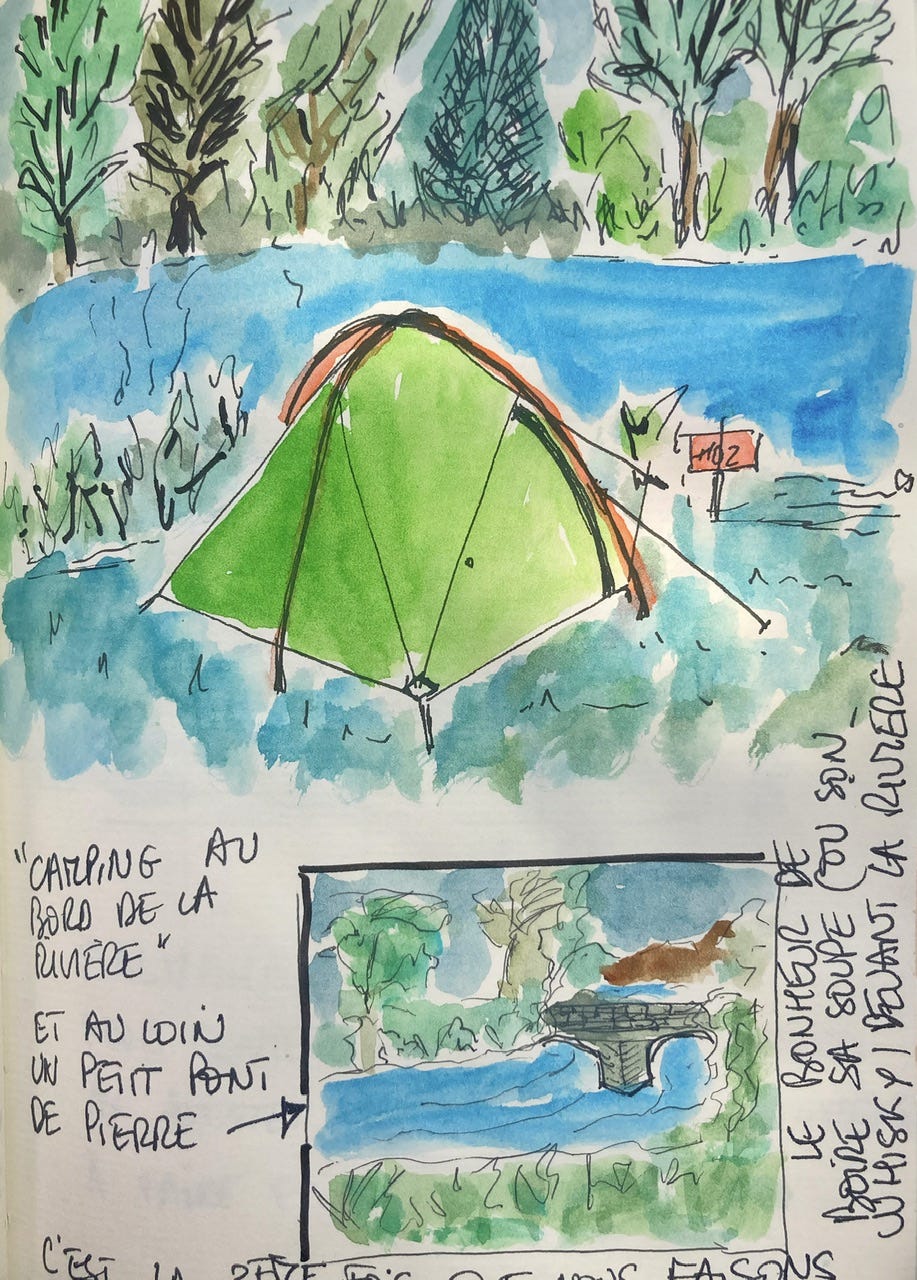 H02
"CAMPING AU
BORD DE LA
RIVIÈRE"
ET AU LOIN
UN PETIT PONT
DE PIERRE
LE BONHEUR DE
BOIRE SA SOUPE (OU SON
WHISKY) DEVANT LA RIVIÈRE
C'EST LA FOIS QUE NOUS FAISONS